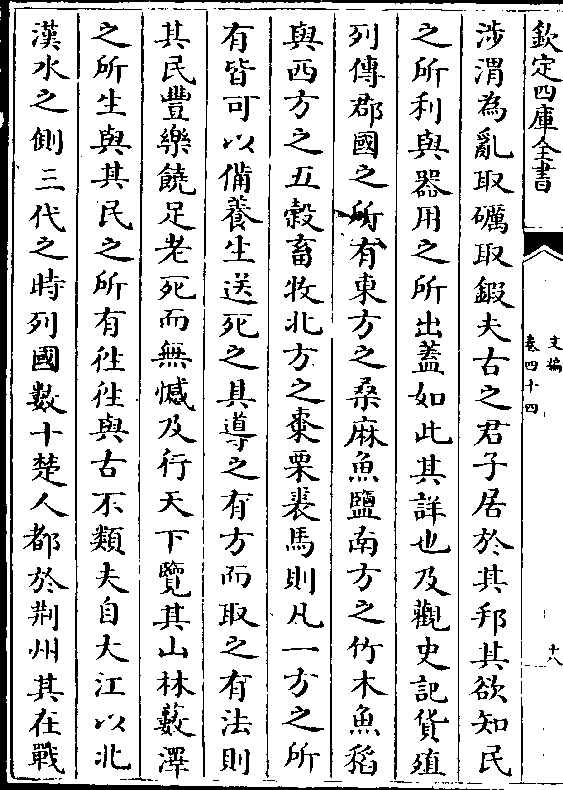 欽定四庫全書
文編
卷四十四
十八
涉渭為亂取礪取鍜夫古之君子居於其邦其欲知民
之所利與器用之所出葢如此其詳也及觀史記貨殖
列傳郡國之所有東方之桑麻魚鹽南方之竹木魚稻
與西方之五糓畜牧北方之棗栗裘馬則凡一方之所
有皆可以備養生送死之具導之有方而取之有法則
其民豐樂饒足老死而無憾及行天下覽其山林藪澤
之所生與其民之所有徃徃與古不類夫自大江以北
漢水之側三代之時列國數十楚人都於荆州其在戰